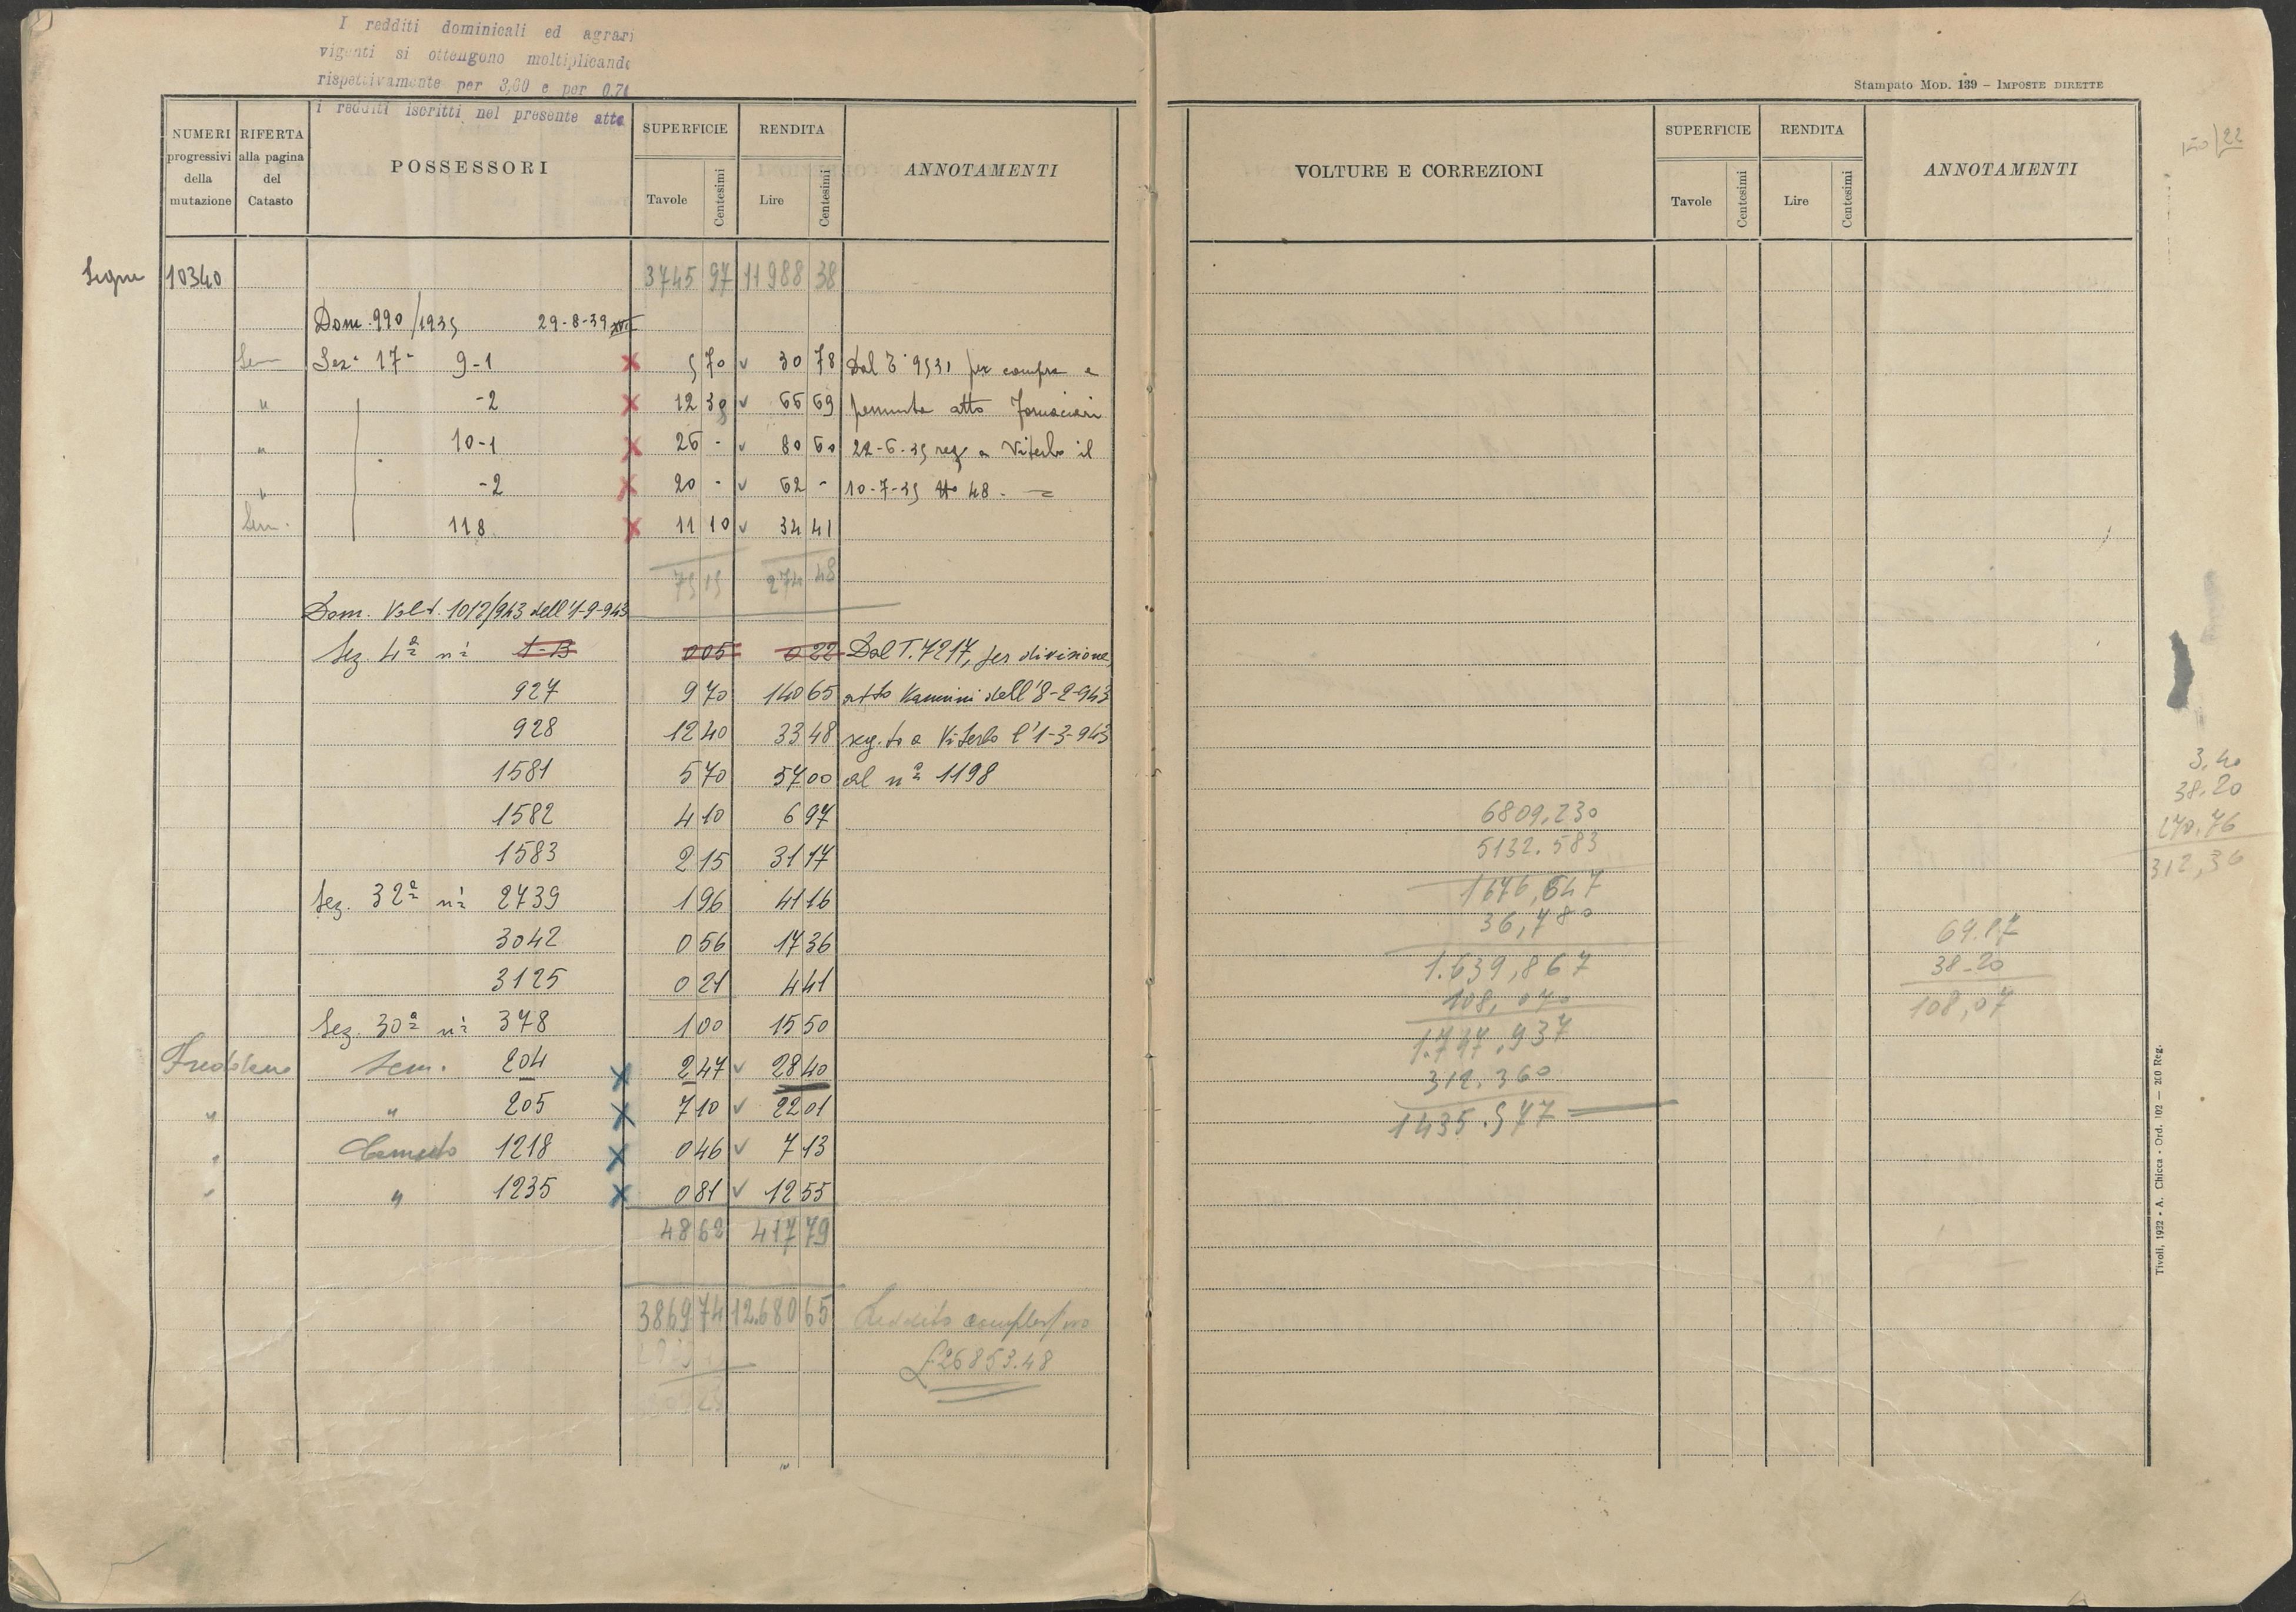 I redditi dominicali ed agrari
vigenti si ottengono moltiplicando
rispettivamente per 3,60 e per 0,70
i redditi iscritti nel presente atto
NUMERI progressivi della mutazione
RIFERTA alla pagina del Catasto
POSSESSORI
SUPERFICIE
Tavole Centesimi
RENDITA
Lire Centesimi
ANNOTAMENTI
Segue 10340 3745 97 11988 38
Dom. 990/1935 29-8-39 XVII
Sem Sez. 17ª 9-1 5 70 30 78 Dal T. 9531 per compra e
" -2 12 39 66 69 permuta atto Fornaciari
" 10-1 26 - 80 60 22-6-35 reg a Viterbo il
" -2 20 - 62 - 10-7-35 N° 48. =
Sem. 118 11 10 34 41
75 19 274 48
Dom. Volt. 1012/943 dell'1-9-943
Sez. 4ª nº 1-B 0 05 0 22 Dal T. 7217, per divisione,
927 9 70 140 65 atto Vannini dell'8-2-943
928 12 40 33 48 reg.to a Viterbo l'1-3-943
1581 5 70 57 00 al nº 1198
1582 4 10 6 97
1583 2 15 31 17
Sez. 32ª nº 2739 1 96 41 16
3042 0 56 17 36
3125 0 21 4 41
Sez. 30ª nº 378 1 00 15 50
Sem. 204 2 47 28 40
" " 205 7 10 22 01
" Canneto 1218 0 46 7 13
" " 1235 0 81 12 55
48 62 417 79
3869 74 12.680 65 Reddito complessivo
£ 26853.48
Stampato MOD. 139 – IMPOSTE DIRETTE
VOLTURE E CORREZIONI
SUPERFICIE
Tavole Centesimi
RENDITA
Lire Centesimi
ANNOTAMENTI
150/22
6809,230
5132.583
1676,647
36,780
1.639,867
108,070
1.747.937
312.360
1435.577
69.87
38-20
108,07
3,40
38.20
270.76
312,36
Tivoli, 1922 - A. Chicca - Ord. 102 — 200 Reg.